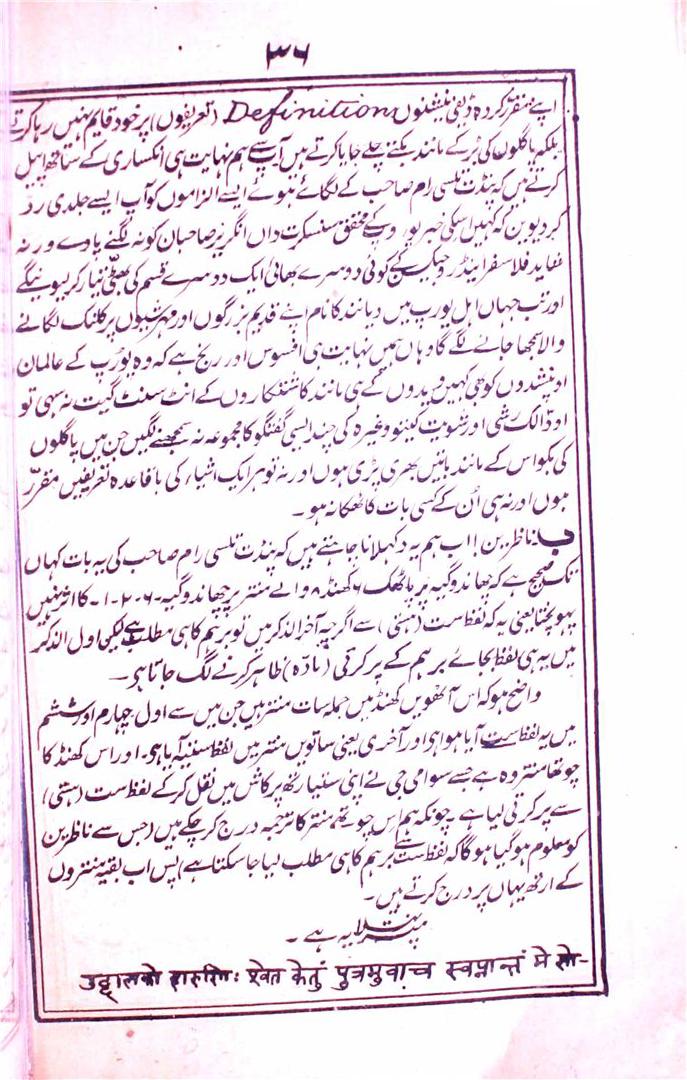 ۳۶
اپنے مقرر کردہ ڈیفی نیشنوں Definitions (تعریفوں) پر خود قایم نہیں رہا کرتے
بلکہ پاگلوں کی بڑ کے مانند بکتے چلے جایا کرتے ہیں آپ سے ہم نہایت ہی انکساری کے ساتھ اپیل
کرتے ہیں کہ پنڈت تلسی رام صاحب کے لگائے ہوئے ایسے الزاموں کو آپ ایسے جلدی رد
کر دیویں کہ کہیں اسکی خبر یورپ کے محقق سنسکرت داں انگریز صاحبان کو نہ لگنے پاوے ورنہ
شاید فلاسفر اینڈرو جیکسن کے کوئی دوسرے بھائی ایک دوسرے قسم کی بھٹی تیار کر لیوینگے
اور تب جہاں اہل یورپ میں دیانند کا نام اپنے قدیم بزرگوں اور مہرشیوں پر کلنک لگانے
والا سمجھا جانے لگے گا وہاں ہمیں نہایت ہی افسوس اور رنج ہے کہ وہ یورپ کے عالمان
اوپنیشدوں کو بھی کہیں ویدوں کے ہی مانند کاشتکاروں کے انٹ سنٹ گیت نہ سہی تو
اودالک رشی اور شویت کیتو وغیرہ کی چند ایسی گفتگو کا مجموعہ نہ سمجھنے لگیں جن میں پاگلوں
کی بکواس کے مانند باتیں بھری پڑی ہوں اور نہ تو ہر ایک اشیاء کی باقاعدہ تعریفیں مقرر
ہوں اور نہ ہی اُن کے کسی بات کا ٹھکانہ ہو۔
ناظرین! اب ہم یہ دکھلانا چاہتے ہیں کہ پنڈت تلسی رام صاحب کی یہ بات کہاں
تک صحیح ہے کہ چھاندوگیہ پرپاٹھک ۶ کھنڈ ۸ والے منتر پر چھاندوگیہ ۶-۲-۱- کا اثر نہیں
پہونچتا یعنی یہ کہ لفظ ست (ہستی) سے اگرچہ آخر الذکر میں تو برہم کا ہی مطلب ہے لیکن اول الذکر
میں یہی لفظ بجائے برہم کے پرکرتی (مادہ) ظاہر کرنے لگ جاتا ہے۔
واضح ہو کہ اس آٹھویں کھنڈ میں جملہ سات منتر ہیں جن میں سے اول، چہارم اور ششم
میں یہ لفظ ست آیا ہوا ہے اور آخری یعنی ساتویں منتر میں لفظ ستیہ آیا ہے۔ اور اس کھنڈ کا
چوتھا منتر وہ ہے جسے سوامی جی نے اپنی ستیارتھ پرکاش میں نقل کر کے لفظ ست (ہستی)
سے پرکرتی لیا ہے۔ چونکہ ہم اس چوتھے منتر کا ترجمہ درج کر چکے ہیں (جس سے ناظرین
کو معلوم ہو گیا ہوگا کہ لفظ ست سے برہم کا ہی مطلب لیا جا سکتا ہے) پس اب بقیہ منتروں
کے ارتھ یہاں پر درج کرتے ہیں۔
منتر پہلا یہ ہے۔
उद्दालको हारुणिः श्वेत केतुं पुत्रमुवाच स्वप्नान्तं मे सो-